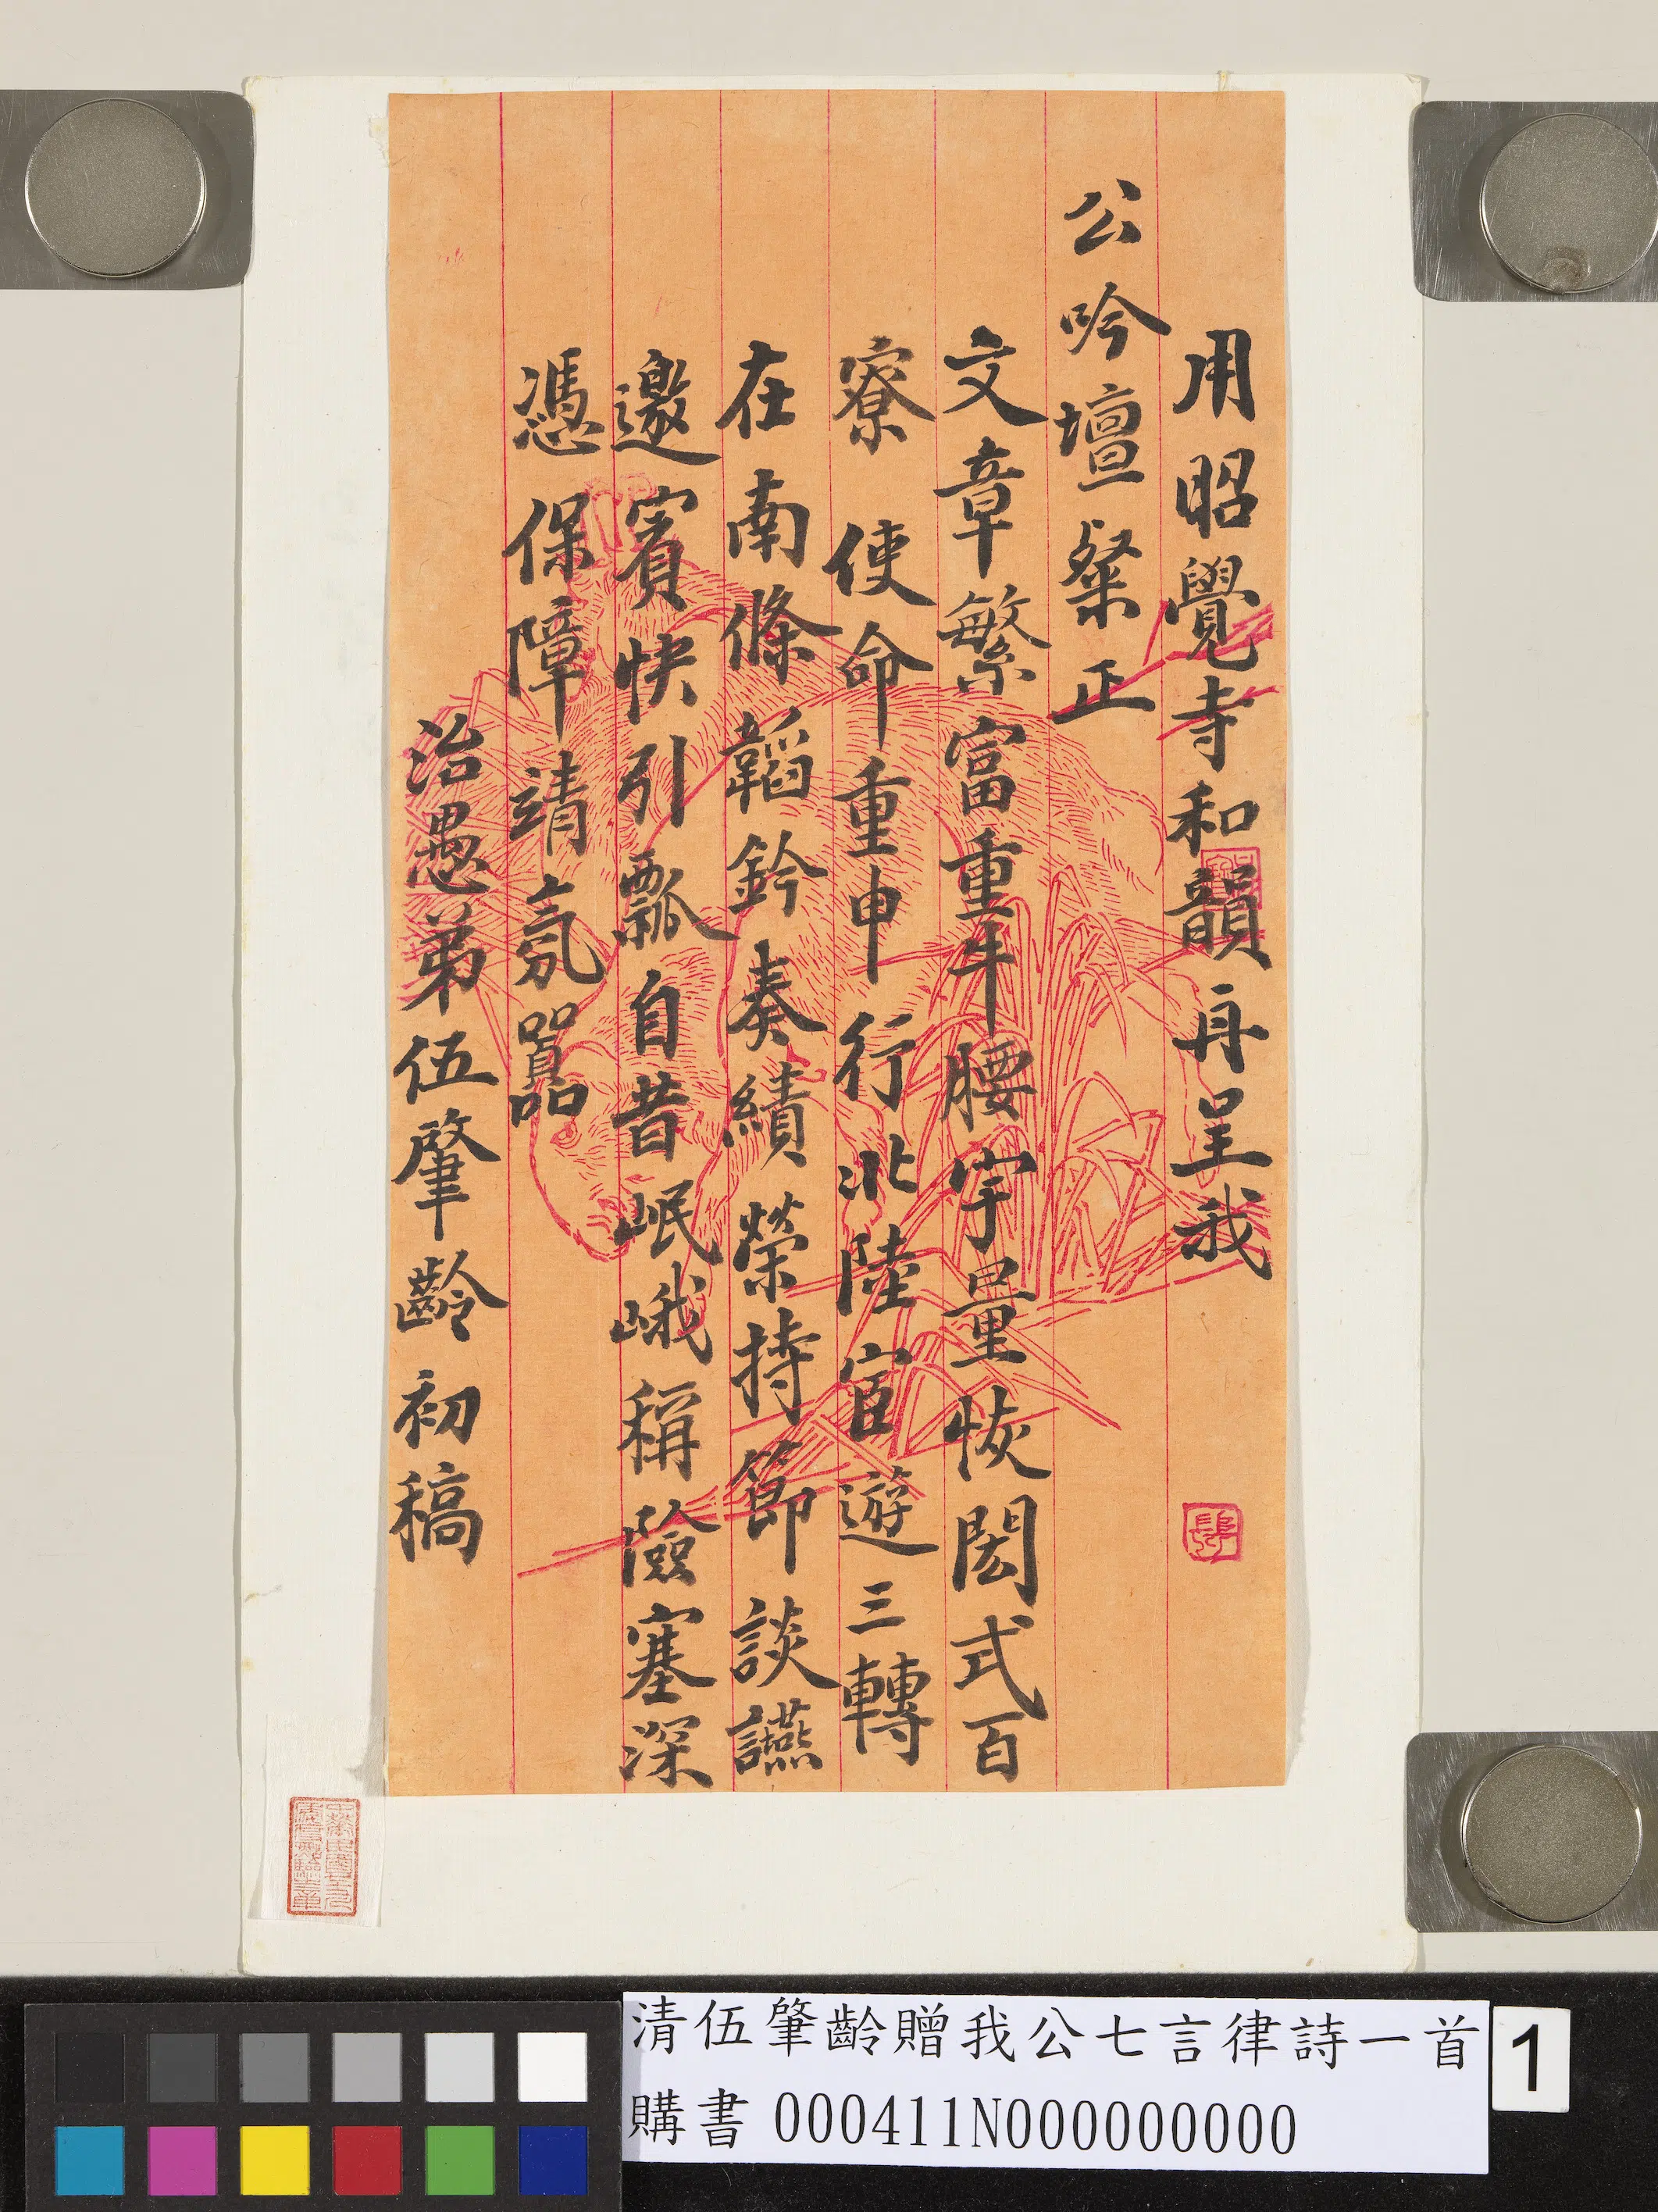 用昭覺寺和韻再呈我
公吟壇粲正
文章繁富重牛腰宇量恢閎式百
寮使命重申行北陸宦遊三轉
在南條韜鈐奏績榮持節談讌
邀賓快引瓢自昔岷峨稱險塞深
憑保障靖氛嚚
治愚弟伍肇齡初稿
清伍肇齡贈我公七言律詩一首
購書 000411N000000000
1